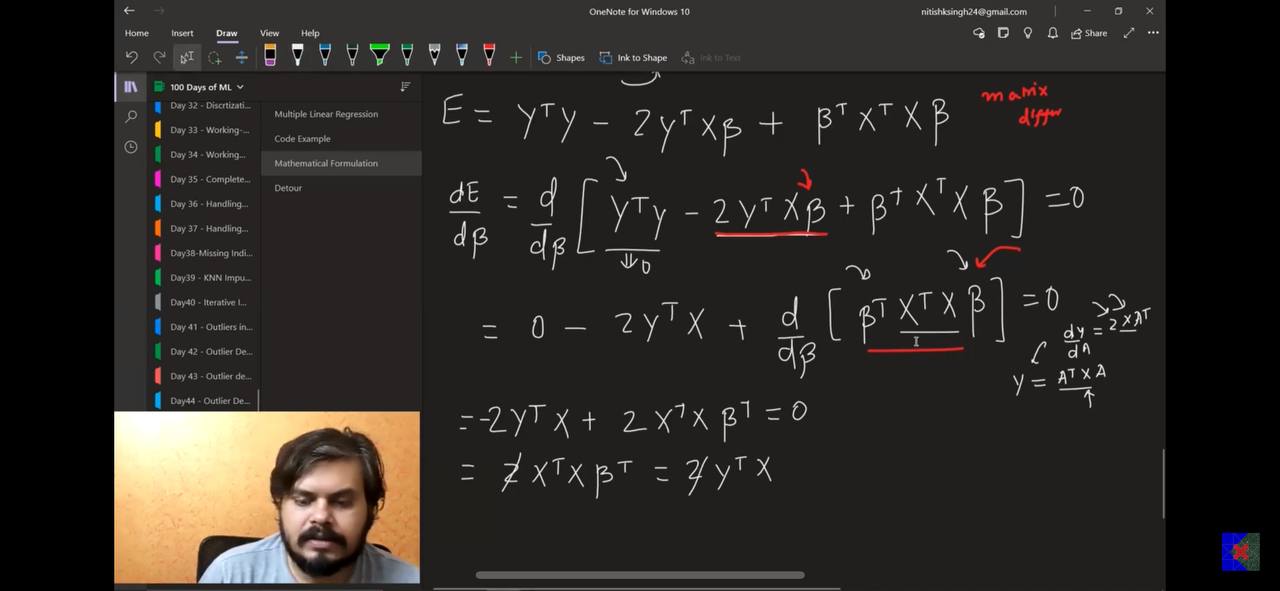 OneNote for Windows 10
nitishksingh24@gmail.com
Home Insert Draw View Help
Share
Shapes Ink to Shape Ink to Text
100 Days of ML
Day 32 - Discrtizati...
Day 33 - Working-...
Day 34 - Working...
Day 35 - Complete...
Day 36 - Handling...
Day 37 - Handling...
Day38-Missing Indi...
Day39 - KNN Impu...
Day40 - Iterative I...
Day 41 - Outliers in...
Day 42 - Outlier De...
Day 43 - Outlier de...
Day44 - Outlier De...
Multiple Linear Regression
Code Example
Mathematical Formulation
Detour
E = Yᵀy - 2yᵀXβ + βᵀXᵀXβ
matrix
differ
dE/dβ = d/dβ [Yᵀy - 2yᵀXβ + βᵀXᵀXβ] = 0
⇓0
= 0 - 2yᵀX + d/dβ [βᵀXᵀXβ] = 0
dy/dA = 2XAᵀ
Y = AᵀXA
= -2yᵀX + 2XᵀXβᵀ = 0
= 2XᵀXβᵀ = 2yᵀX